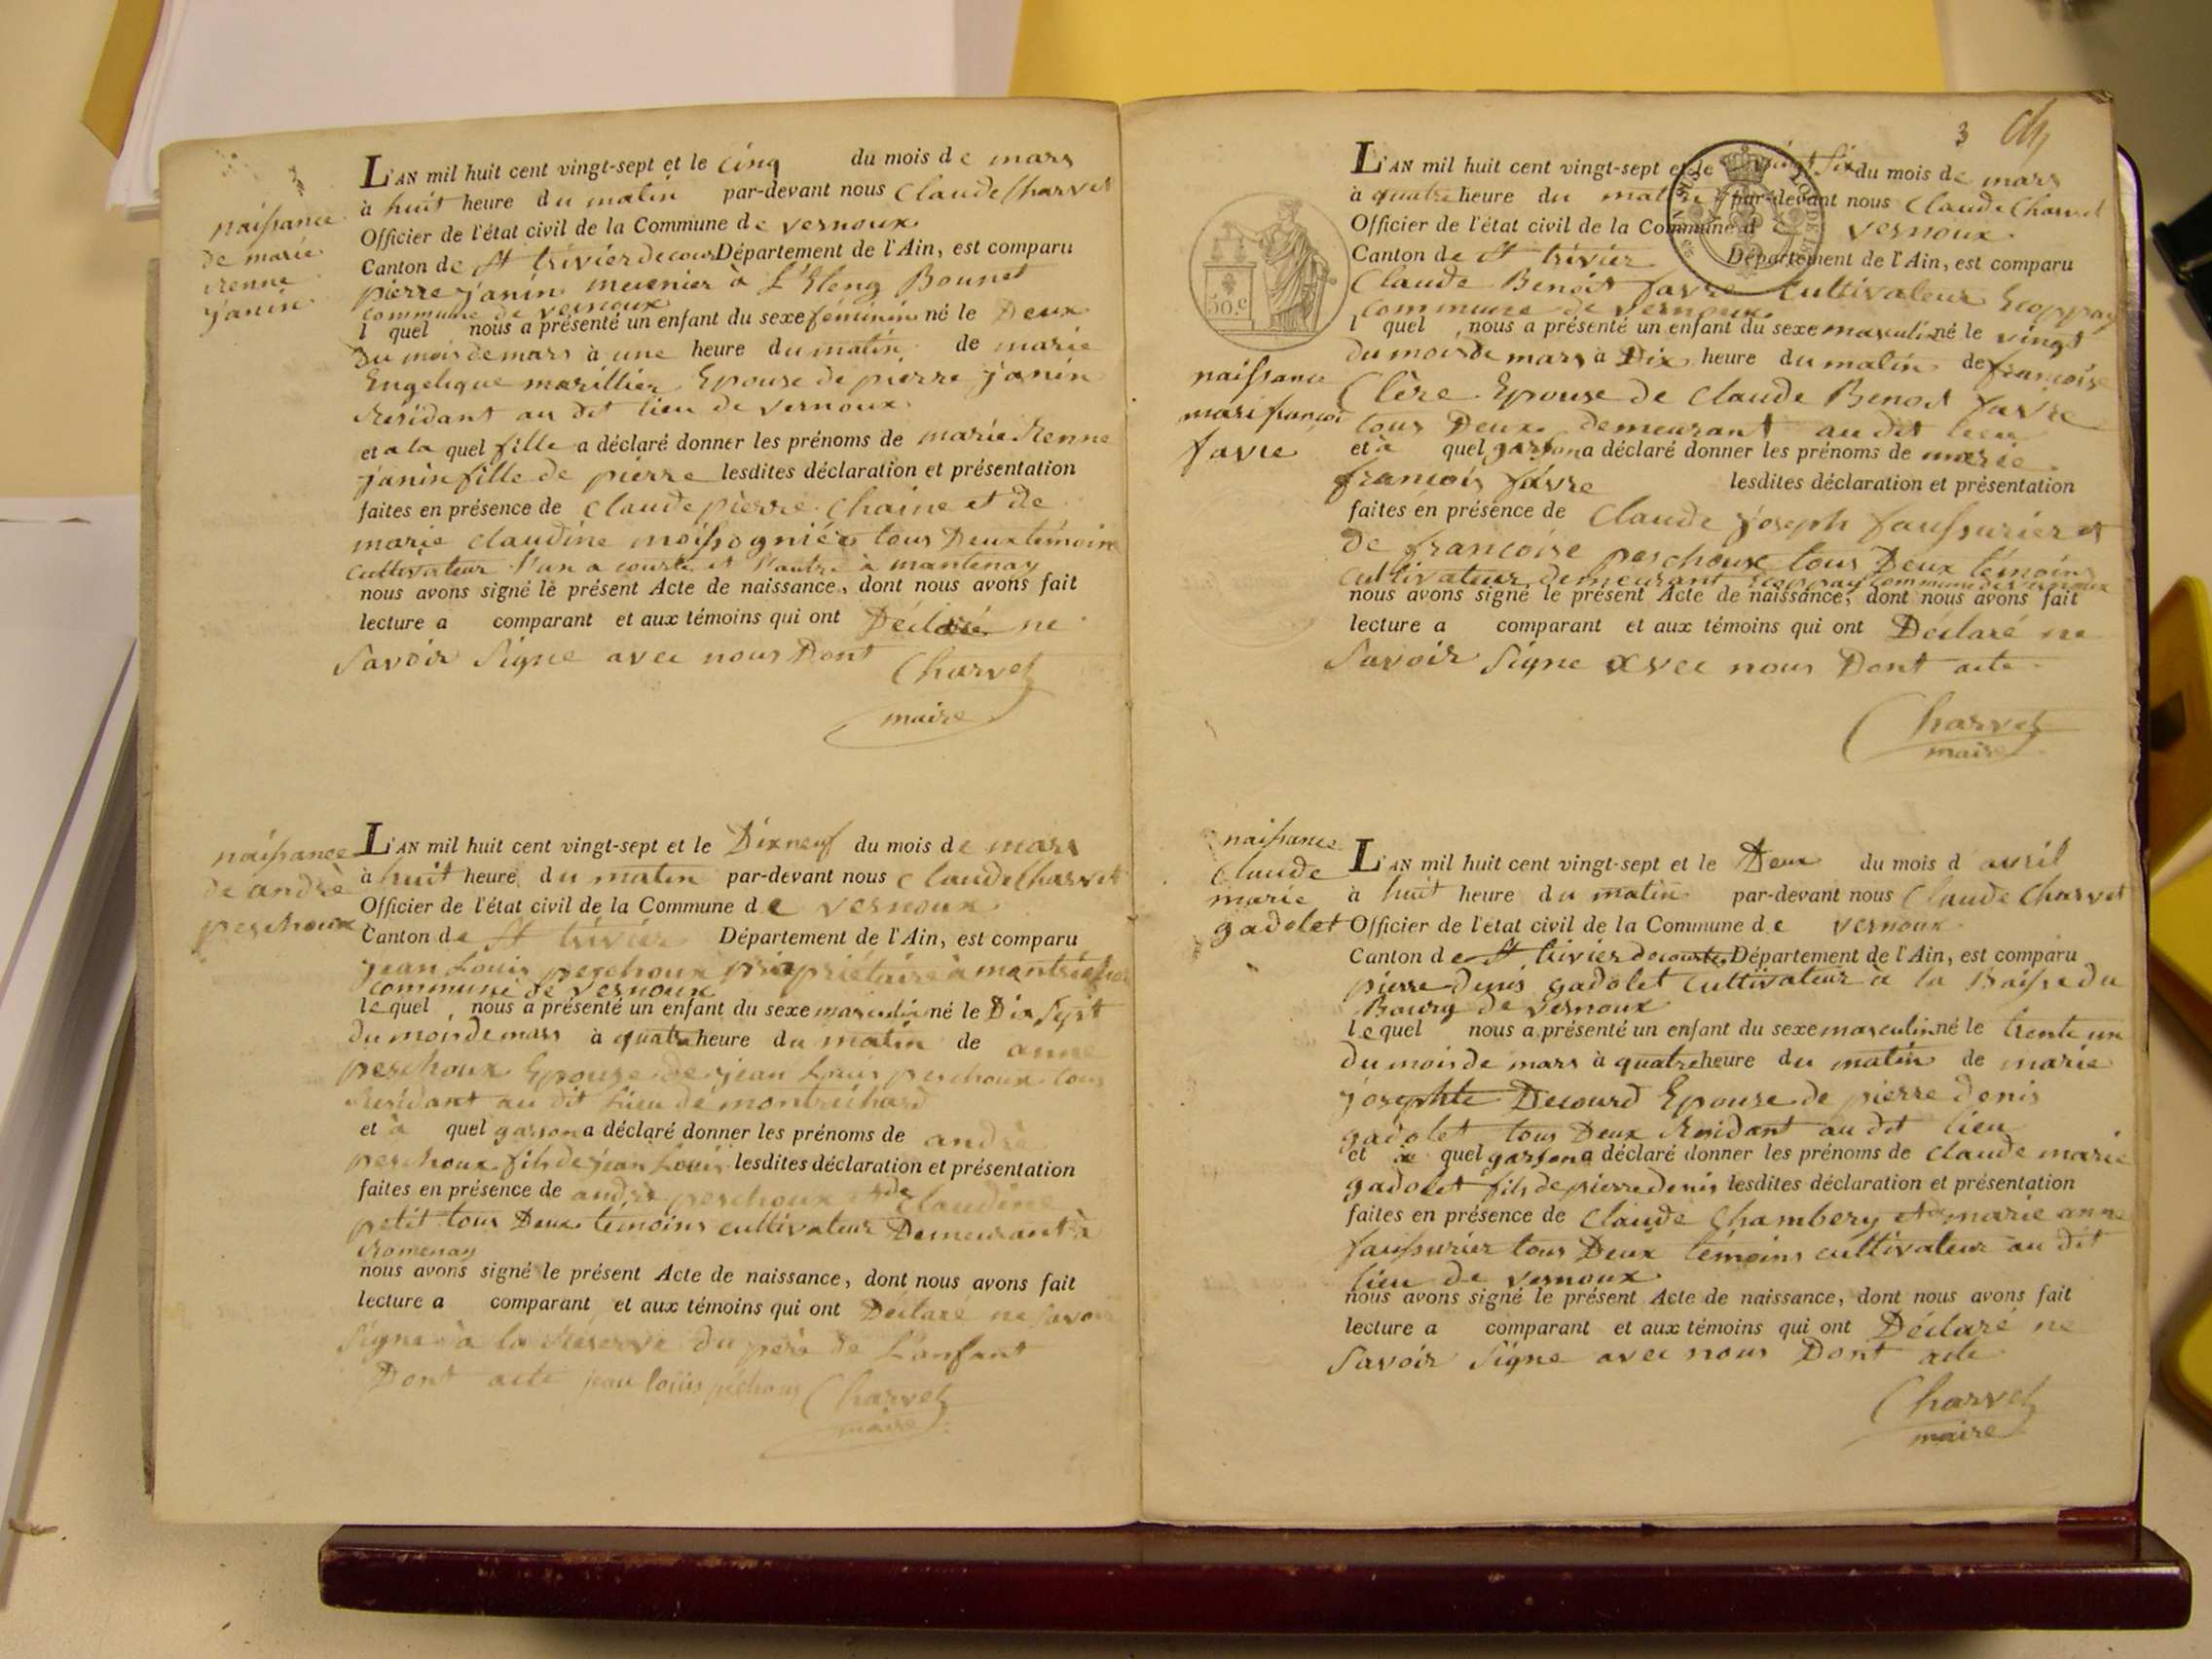 naissance
de marie
renne
janin
L'AN mil huit cent vingt-sept et le cinq du mois de mars
à huit heure du matin par-devant nous Claude Charvet
Officier de l'état civil de la Commune de vernoux
Canton de St trivier de cour Département de l'Ain, est comparu
pierre janin meunier à Bounet
commune de vernoux
l quel nous a présenté un enfant du sexe féminin né le Deux
du mois de mars à une heure du matin de marie
Engelique marillier Epouse de pierre janin
Résidant au dit lieu de vernoux
et a la quel fille a déclaré donner les prénoms de marie Renne
janin fille de pierre lesdites déclaration et présentation
faites en présence de Claude pierre Chaine et de
marie claudine tous Deux témoins
cultivateur l'un a courte et l'autre à mantenay
nous avons signé le présent Acte de naissance, dont nous avons fait
lecture a comparant et aux témoins qui ont Déclaré ne
Savoir Signe avec nous Dont
Charvet
maire
naissance
de andrè
peschoux
L'AN mil huit cent vingt-sept et le Dixneuf du mois de mars
à huit heure du matin par-devant nous Claude Charvet
Officier de l'état civil de la Commune de vernoux
Canton de St trivier Département de l'Ain, est comparu
jean Louis peschoux propriétaire à
commune de vernoux
le quel nous a présenté un enfant du sexe masculin né le Dix Sept
du mois de mars à quatre heure du matin de anne
peschoux Epouse de jean Louis peschoux tous
Résidant au dit Lieu de montrichard
et à quel garson a déclaré donner les prénoms de andrè
peschoux fils de jean Louis lesdites déclaration et présentation
faites en présence de andrè peschoux et de Claudine
petit tous Deux témoins cultivateur Demeurant à
Romenay
nous avons signé le présent Acte de naissance, dont nous avons fait
lecture a comparant et aux témoins qui ont Déclaré ne savoir
Signe à la Réserve du père de L'anfant
Dont acte jean loüis péchoux Charvet
maire
3
L'AN mil huit cent vingt-sept et le vingt Six du mois de mars
à quatre heure du matin par-devant nous Claude Charvet
Officier de l'état civil de la Commune de vernoux
Canton de St trivier Département de l'Ain, est comparu
Claude Benoit favre Cultivateur Ecoppay
commune de vernoux
50.c
l quel nous a présenté un enfant du sexe masculin né le vingt
du mois de mars à Dix heure du matin de françoise
Clère Epouse de Claude Benoit favre
tous Deux demeurant au dit lieu
naissance
mari françoi
favre
et à quel garson a déclaré donner les prénoms de marie
françois favre lesdites déclaration et présentation
faites en présence de Claude joseph faussurier et
De françoise peschoux tous Deux témoins
cultivateur demeurant Ecoppay commune de vernoux
nous avons signé le présent Acte de naissance, dont nous avons fait
lecture a comparant et aux témoins qui ont Déclaré ne
Savoir Signe avec nous Dont acte
Charvet
maire
naissance
Claude
marie
gadolet
L'AN mil huit cent vingt-sept et le Deux du mois d avril
à huit heure du matin par-devant nous Claude Charvet
Officier de l'état civil de la Commune de vernoux
Canton de St trivier de courtes Département de l'Ain, est comparu
pierre denis gadolet cultivateur à la Baisse du
Bourg de vernoux
le quel nous a présenté un enfant du sexe masculin né le trente un
du mois de mars à quatre heure du matin de marie
josephte Decourd Epouse de pierre denis
gadolet tous Deux Résidant au dit lieu
et à quel garson a déclaré donner les prénoms de Claude marie
gadolet fils de pierre denis lesdites déclaration et présentation
faites en présence de Claude Chambery et de marie anne
faussurier tous Deux témoins cultivateur au dit
lieu de vernoux
nous avons signé le présent Acte de naissance, dont nous avons fait
lecture a comparant et aux témoins qui ont Déclaré ne
Savoir Signe avec nous Dont acte
Charvet
maire